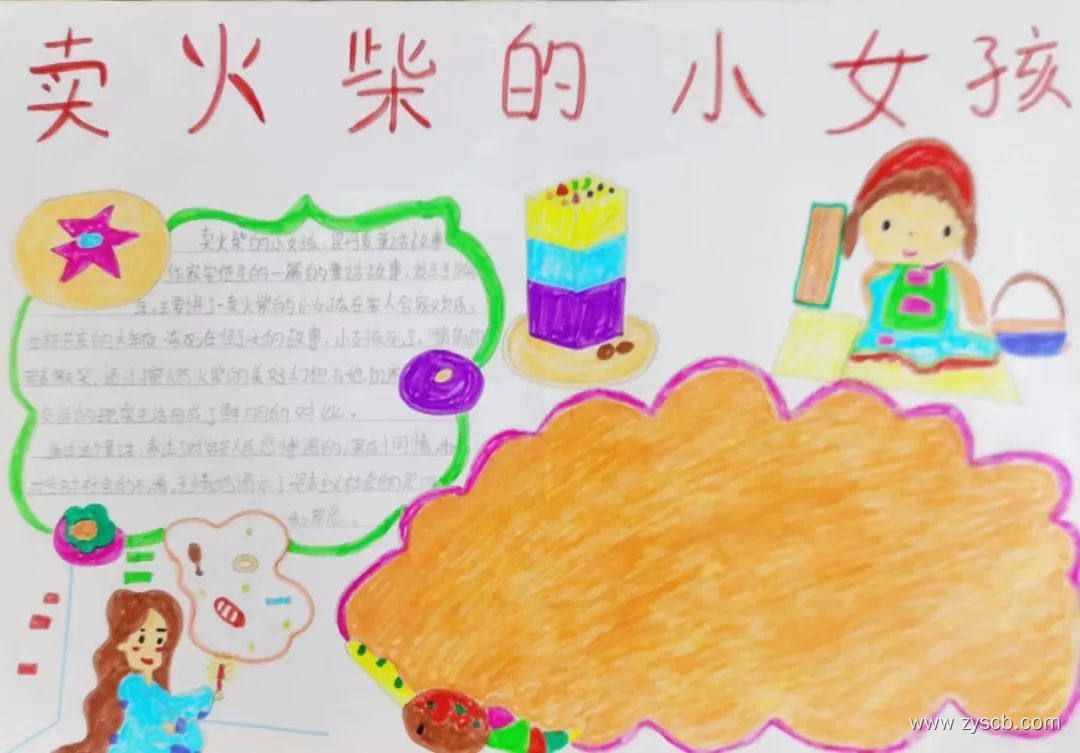 卖火柴的小女孩
卖火柴的小女孩,是丹麦童话故事
作家安徒生的一篇的童话故事,发
年,主要讲了一卖火柴的小女孩在家人合家欢乐,
共度的大年夜冻死在街头的故事,小女孩死了,嘴角
带着微笑,通过擦燃火柴的美好幻想与她
的现实生活形成了鲜明的对比。
通过这个童话,表达了对穷苦人民悲惨遭遇的,深刻同情,
对当时社会的不满,无情地揭示了资本主义社会的黑
和罪恶。
www.zyscb.com